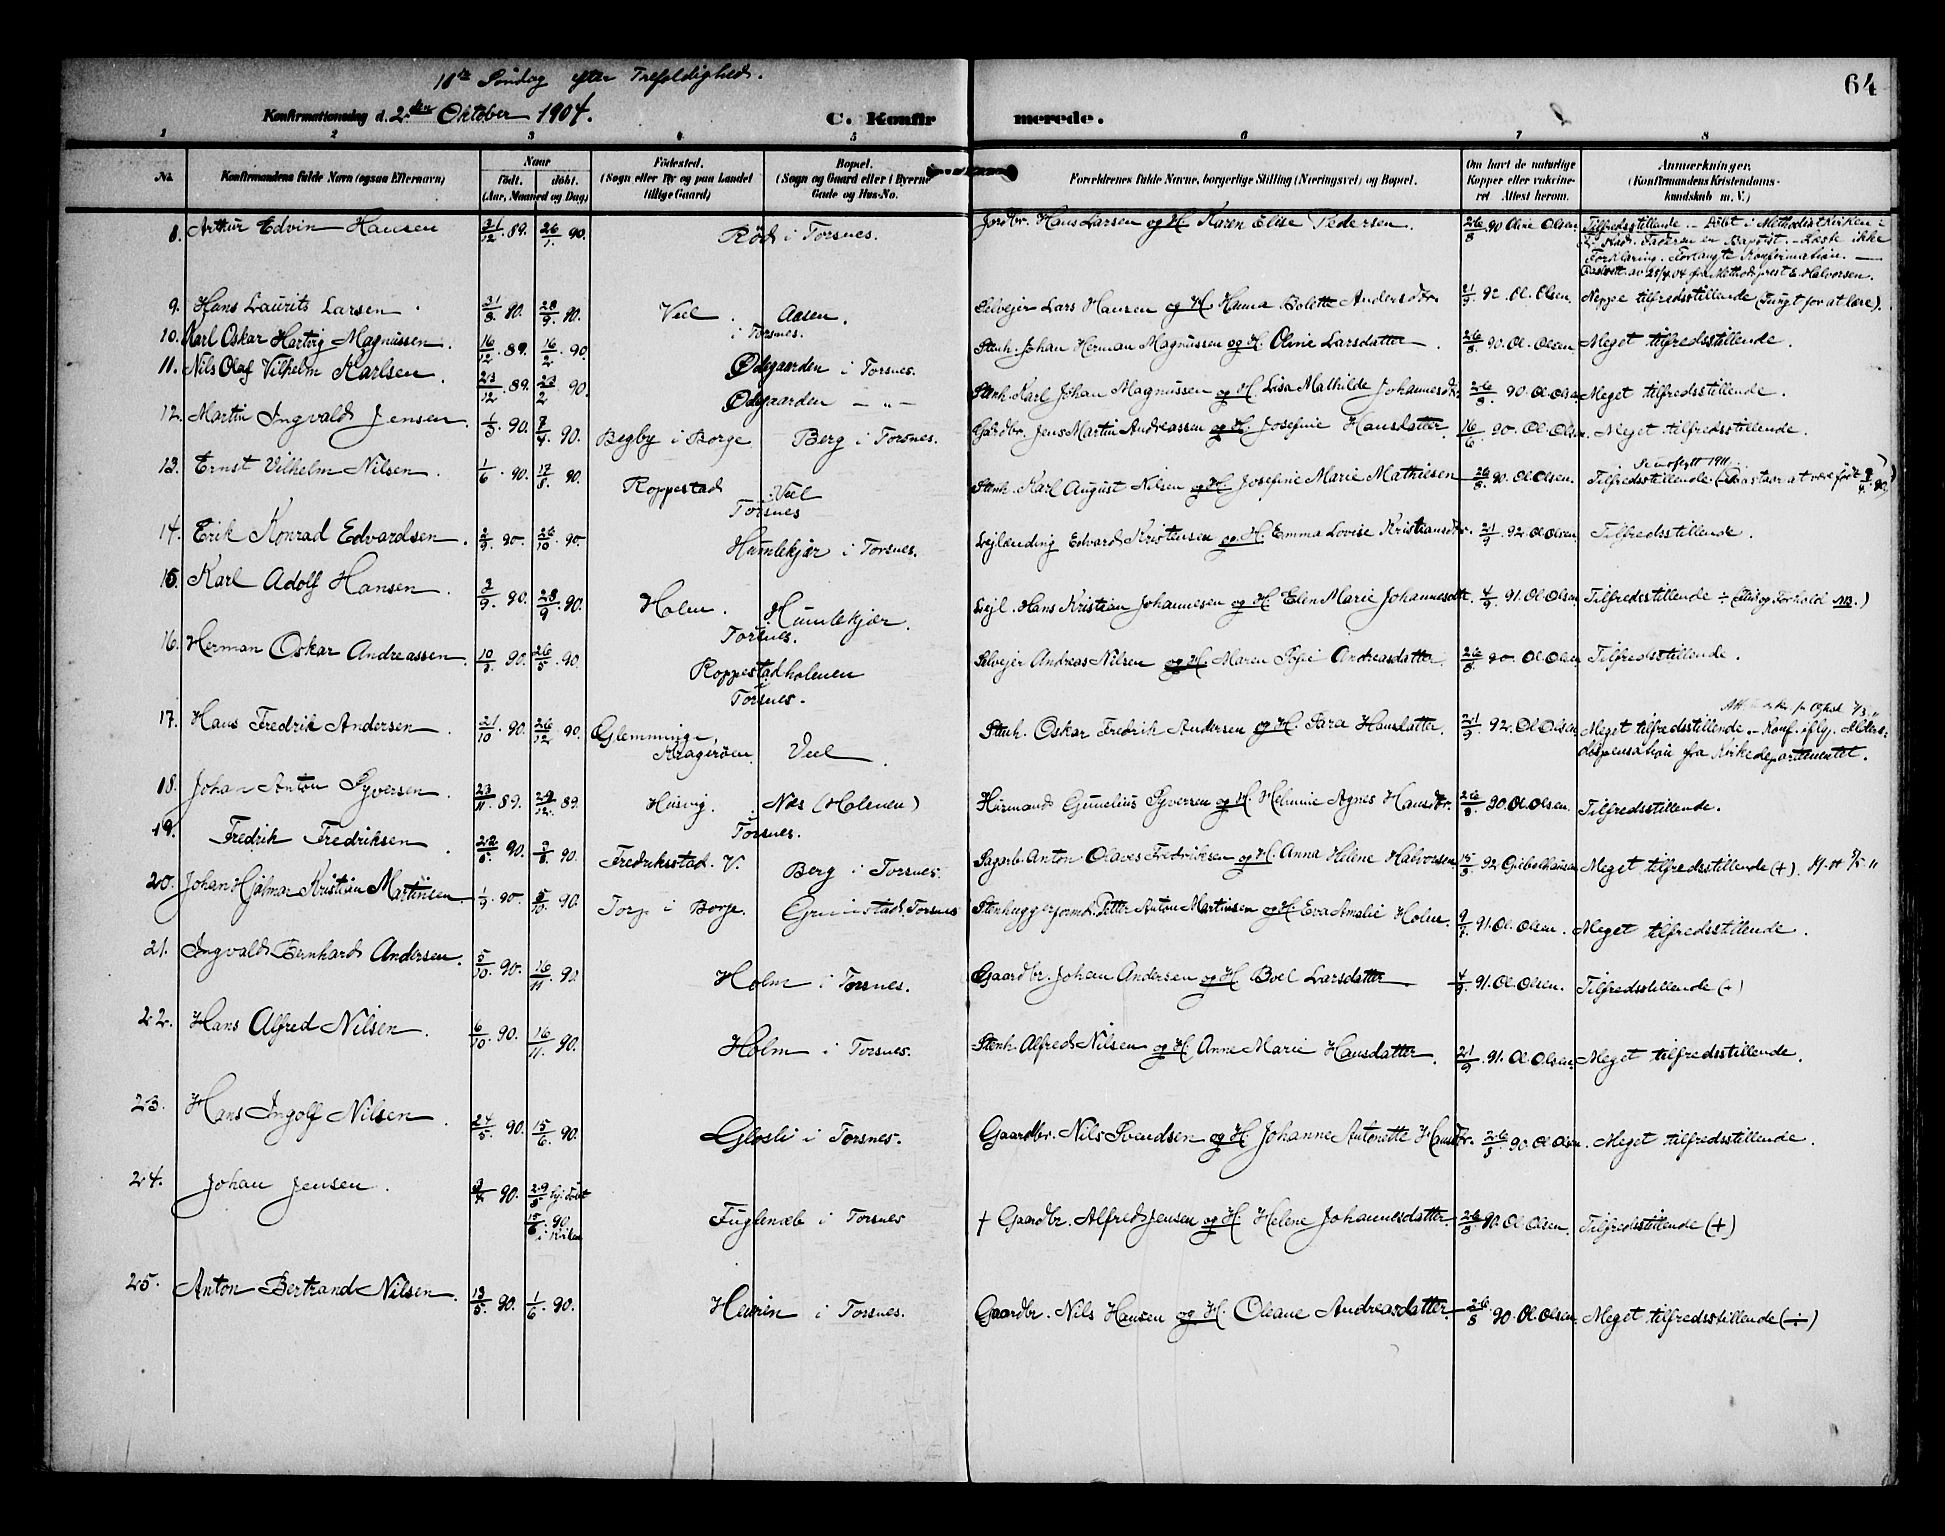 18de Søndag efter Trefoldighed.
64
Konfirmationsdag d. 2den Oktober 1904.
C. Konfirmerede.
1 2 3 4 5 6 7 8
No. Konfirmandens fulde Navn (ogsaa Efternavn) Naar født. døbt. (Aar, Maaned og Dag) Fødested. (Sogn eller By og paa Landet tillige Gaard) Bopæl. (Sogn og Gaard eller i Byerne Gade og Hus-No. Forældrenes fulde Navne, borgerlige Stilling (Næringsvei) og Bopæl. Om havt de naturlige Kopper eller vakcineret Attest herom. Anmærkninger. (Konfirmandens Kristendomskundskab m. V.)
8. Arthur Edvin Hansen 31/12 89. 26/1 90. Röd i Torsnes. Jordbr. Hans Larsen og H. Karen Elise Pedersen. 26/8 90 Oline Olsen Tilfredsstillende. – Döbt i Methodistkirken i
Fr.stad. Faderen er Baptist. – Læste ikke
Forklaring. Forlangte Konfirmation. —
av 25/4 04 fra Methodistprest E. Halvorsen.
9. Hans Laurits Larsen. 31/8 90. 28/9 90. Veel. Aasen. i Torsnes. Selveier Lars Hansen og H. Hanna Bolette Andersdtr. 21/9 92 Ol. Olsen. Neppe tilfredsstillende (Tungt for at lære).
10. Karl Oskar Hartvig Magnussen. 16/12 89. 16/2 90. Ødegaarden i Torsnes. Stenh. Johan Herman Magnussen og H. Oline Larsdatter. 26/8 90. Ol. Olsen Meget tilfredsstillende.
11. Nils Olaf Vilhelm Karlsen. 23/12 89. 23/2 90. Ødegaarden – „ – Stenh. Karl Johan Magnussen og H. Lisa Mathilde Johannesdtr. 26/8 90. Ol. Olsen Meget tilfredsstillende.
12. Martin Ingvald Jensen. 1/3 90. 7/4 90. Begby i Borge Berg i Torsnes. Gårdbr. Jens Martin Andreassen og H. Josefine Hansdatter 16/6 90 Ol. Olsen. Meget tilfredsstillende.
13. Ernst Vilhelm Nilsen. 1/6 90. 17/8 90. Roppestad Veel Torsnes Stenh. Karl August Nilsen og H. Josefine Marie Mathiesen 26/8 90. Ol. Olsen. Tilfredsstillende. (Paastaar at være født 9/4 90)
14. Erik Konrad Edvardsen. 2/9 90. 26/10 90. Humlekjær i Torsnes. Leilænding Edvard Kristensen og H. Emma Lovise Kristiansdtr. 21/9 92. Ol. Olsen Tilfredsstillende.
15. Karl Adolf Hansen. 3/9 90. 28/9 90. Holm. Humlekjær. Torsnes. Leil. Hans Kristian Johannesen og H. Elen Marie Johannesdtr. 4/9 91. Ol. Olsen Tilfredsstillende ÷ (Flid og Forhold NB.)
16. Herman Oskar Andreassen. 10/3 90. 26/5 90. Roppestadholmen i Torsnes. Selveier Andreas Nilsen og H. Maren Sofie Andreasdatter. 26/8 90. Ol. Olsen Tilfredsstillende.
17. Hans Fredrik Andersen. 21/10 90. 26/12 90. Glemminge, Kragerøen. Veel. Stenh. Oskar Fredrik Andersen og H. Sara Hansdatter. 21/9 92. Ol. Olsen Meget tilfredsstillende. – Konf. iflg. Alders-
dispensation fra Kirkedepartementet.
18. Johan Anton Syversen. 23/11 89. 29/12 89. Husvig. Næs (Holmen) Torsnes. Husmand Gunelius Syversen og H. Helmine Agnes Hansdtr. 26/8 90. Ol. Olsen. Tilfredsstillende.
19. Fredrik Fredriksen. 22/5 90. 3/8 90. Fredriksstad. V. Berg i Torsnes. Sagarb. Anton Olaves Fredriksen og H. Anna Helene Halvorsen 15/9 92 Meget tilfredsstillende (+).
20. Johan Hjalmar Kristian Martinsen 1/9 90. 5/10 90. Torp i Borge. Grimstad, Torsnes Stenhuggerformd. Petter Anton Martinsen og H. Eva Amalie Holm. 9/7 91. Ol. Olsen. Meget tilfredsstillende.
21. Ingvald Bernhard Andersen. 5/10 90. 16/11 90. Holm i Torsnes. Gaardbr. Johan Andersen og H. Boel Larsdatter 4/9 91. Ol. Olsen. Tilfredsstillende (÷)
22. Hans Alfred Nilsen. 6/10 90. 16/11 90. Holm i Torsnes. Stenh. Alfred Nilsen og H. Anne Marie Hansdatter. 21/9 91. Ol. Olsen Meget tilfredsstillende.
23. Hans Ingolf Nilsen. 24/5 90. 15/6 90. Glosli i Torsnes. Gaardbr. Nils Svendsen og H. Johanne Antonette Hansdtr. 26/8 90. Ol. Olsen. Meget tilfredsstillende.
24. Johan Jensen. 3/4 90. 29/5 hj.døbt 15/6 90. i Kirken Fuglenæb i Torsnes † Gaardbr. Alfred Jensen og H. Helene Johannesdatter. 26/8 90. Ol. Olsen. Tilfredsstillende (+)
25. Anton Bertrand Nilsen. 13/5 90. 1/6 90. Heuren i Torsnes. Gaardbr. Nils Hansen og H. Oleane Andreasdatter. 26/8 90. Ol. Olsen. Meget tilfredsstillende (÷)